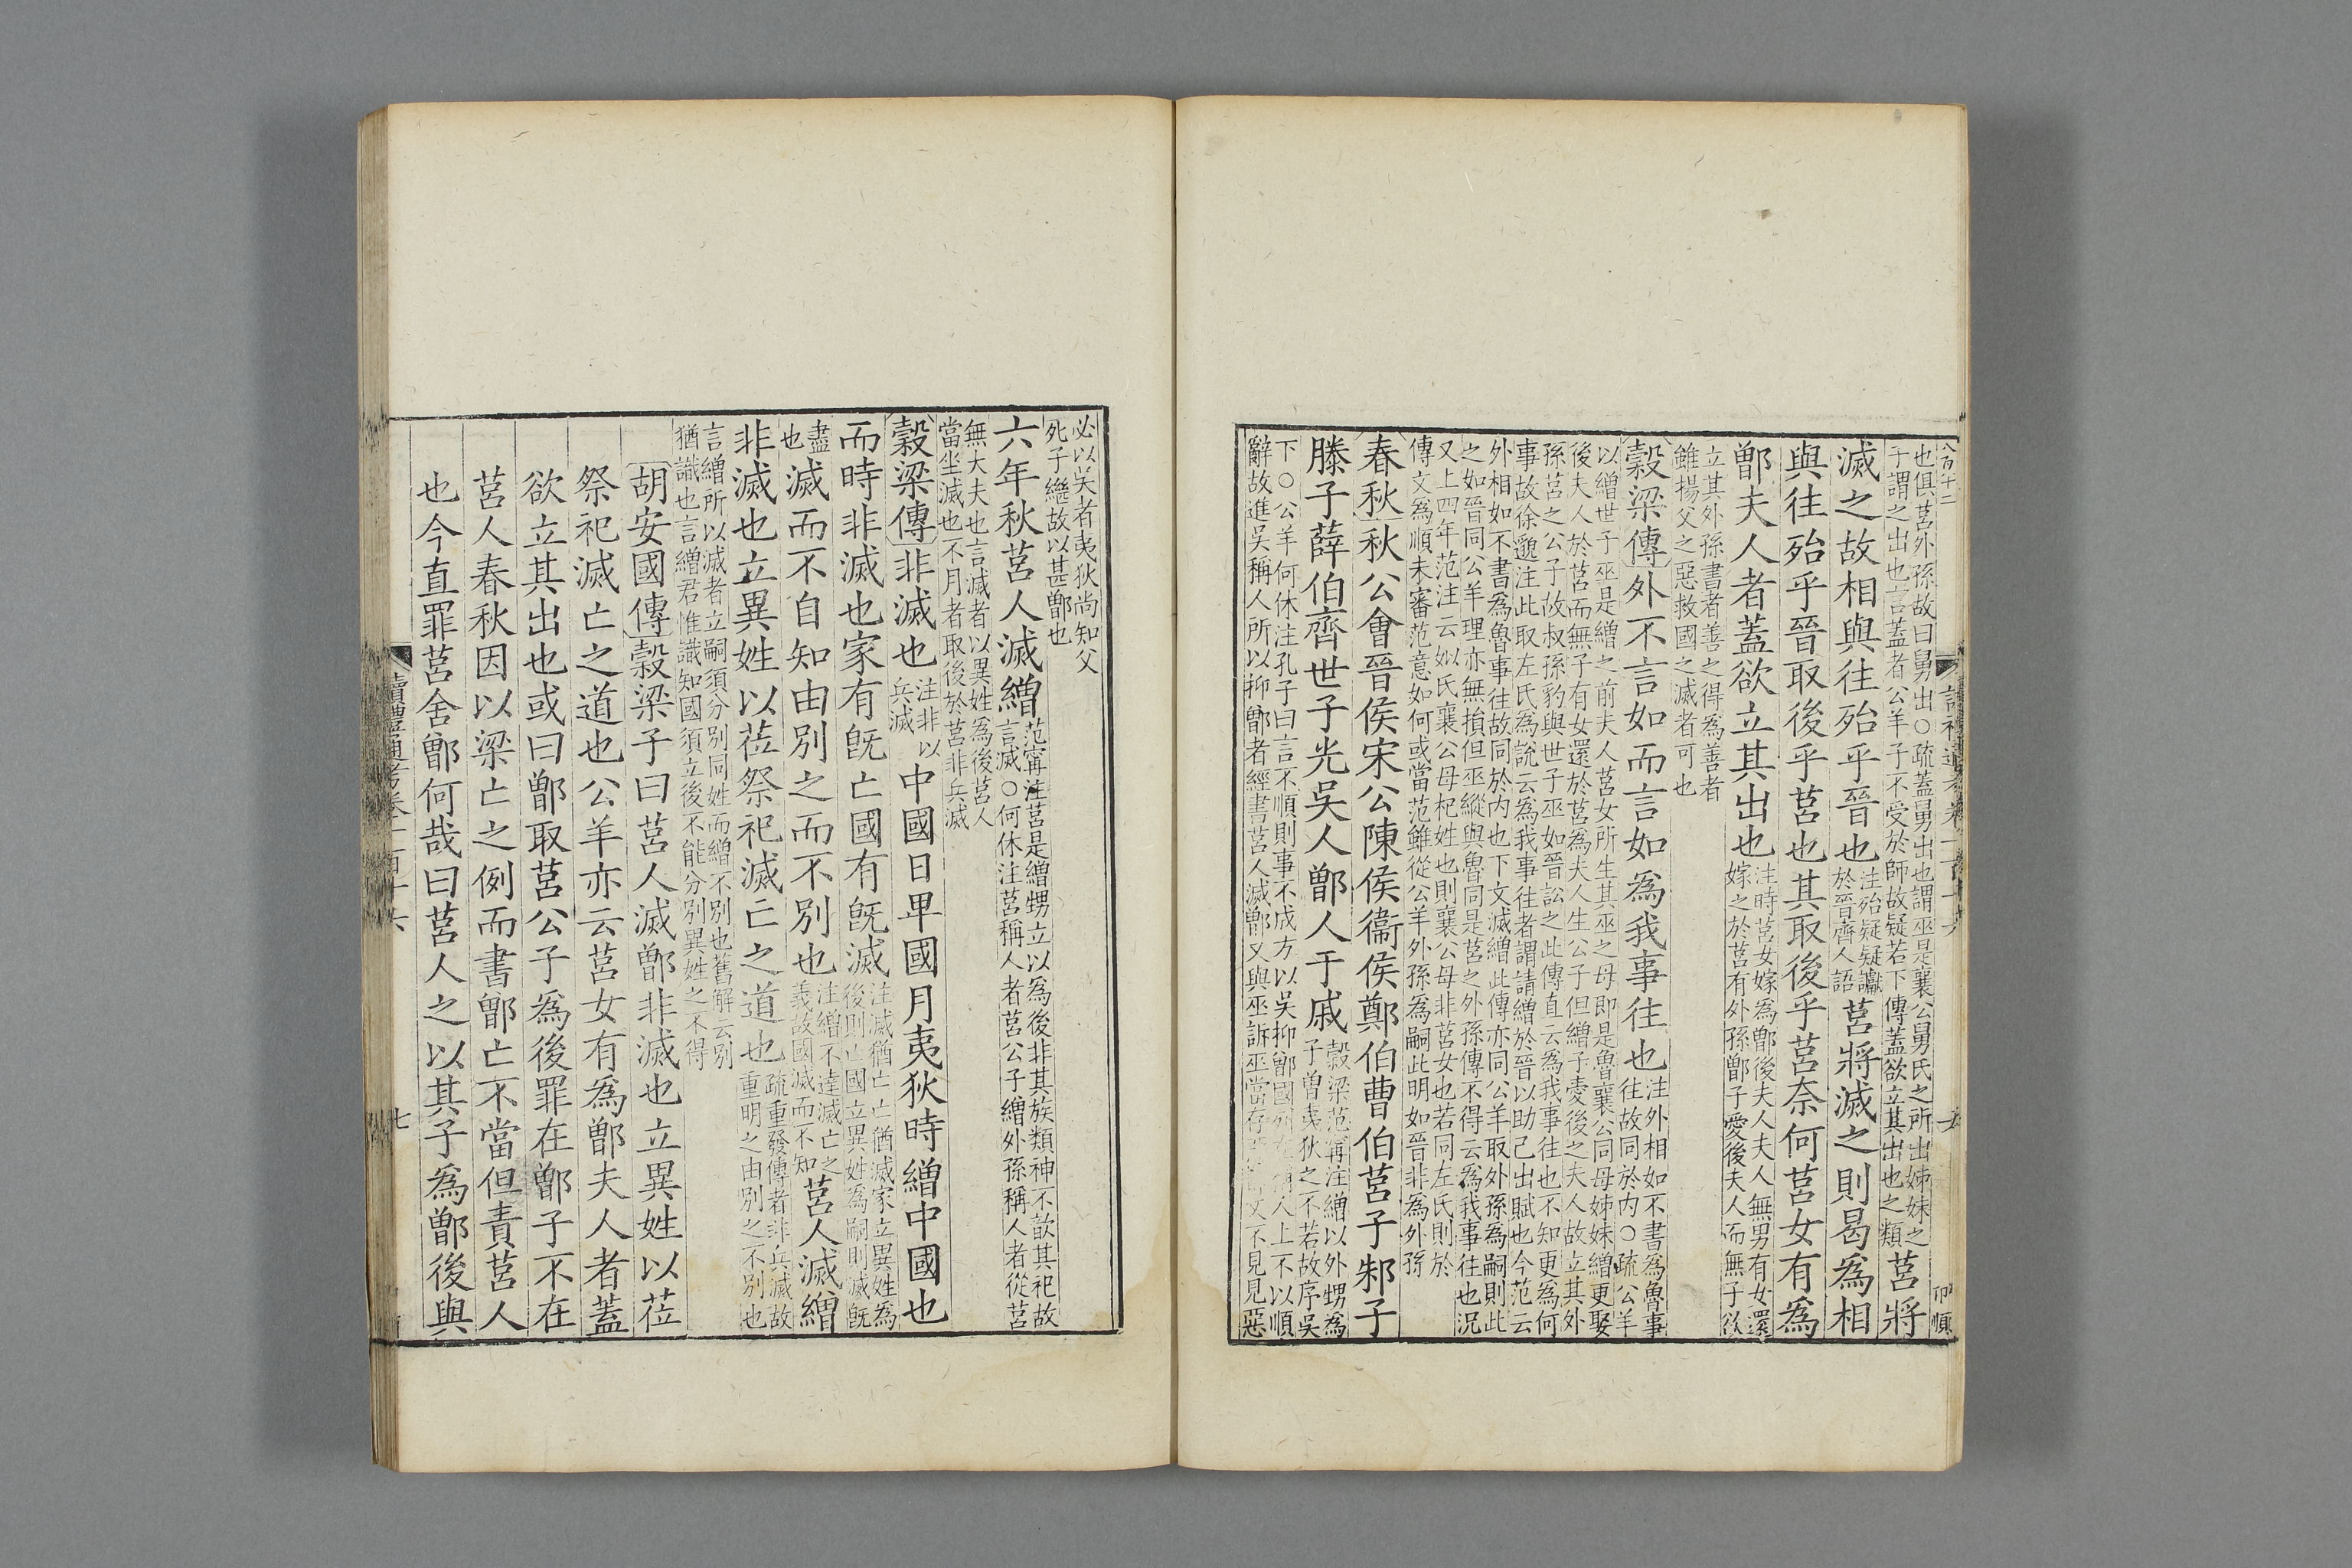 八百十二
也俱莒外孫故曰舅出○疏蓋舅出也謂巫是襄公舅氏之所出姊妹之
子謂之出也言蓋者公羊子不受於師故疑若下傳蓋欲立其出也之類
莒將
滅之故相與往殆乎晉也
注殆疑疑讞
於晉齊人語
莒將滅之則曷為相
與往殆乎晉取後乎莒也其取後乎莒奈何莒女有為
鄫夫人者蓋欲立其出也
注時莒女嫁為鄫後夫人夫人無男有女還
嫁之於莒有外孫鄫子愛後夫人而無子欲
立其外孫書者善之得為善者
雖揚父之惡救國之滅者可也
穀梁傳外不言如而言如為我事往也
注外相如不書為魯事
往故同於內○疏公羊
以繒世子巫是繒之前夫人莒女所生其巫之母即是魯襄公同母姊妹繒更娶
後夫人於莒而無子有女還於莒為夫人生公子但繒子愛後之夫人故立其外
孫莒之公子故叔孫豹與世子巫如晉訟之此傳直云為我事往也不知更為何
事故徐邈注此取左氏為說云為我事往者謂請繒於晉以助己出賦也今范云
外相如不書為魯事往故同於內也下文滅繒此傳亦同公羊取外孫為嗣則此
之如晉同公羊理亦無損但巫縱與魯同是莒之外孫傳不得云為我事往也況
又上四年范注云姒氏襄公母杞姓也則襄公母非莒女也若同左氏則於
傳文為順未審范意如何或當范雖從公羊外孫為嗣此明如晉非為外孫
春秋秋公會晉侯宋公陳侯衞侯鄭伯曹伯莒子邾子
滕子薛伯齊世子光吳人鄫人于戚
穀梁范甯注繒以外甥為
子曾夷狄之不若故序吳
下○公羊何休注孔子曰言不順則事不成方以吳抑鄫國列在稱人上不以順
辭故進吳稱人所以抑鄫者經書莒人滅鄫又與巫訴巫當存惡文不見見惡
必以吳者夷狄尚知父
死子繼故以甚鄫也
六年秋莒人滅繒
范甯注莒是繒甥立以為後非其族類神不歆其祀故
言滅○何休注莒稱人者莒公子繒外孫稱人者從莒
無大夫也言滅者以異姓為後莒人
當坐滅也不月者取後於莒非兵滅
穀梁傳非滅也
注非以
兵滅
中國日卑國月夷狄時繒中國也
而時非滅也家有旣亡國有旣滅
注滅猶亡亡猶滅家立異姓為
後則亡國立異姓為嗣則滅旣
盡
也
滅而不自知由別之而不別也
注繒不達滅亡之
義故國滅而不知
莒人滅繒
非滅也立異姓以莅祭祀滅亡之道也
疏重發傳者非兵滅故
重明之由別之不別也
言繒所以滅者立嗣須分別同姓而繒不別也舊解云別
猶識也言繒君惟識知國須立後不能分別異姓之不得
胡安國傳穀梁子曰莒人滅鄫非滅也立異姓以莅
祭祀滅亡之道也公羊亦云莒女有為鄫夫人者蓋
欲立其出也或曰鄫取莒公子為後罪在鄫子不在
莒人春秋因以梁亡之例而書鄫亡不當但責莒人
也今直罪莒舍鄫何哉曰莒人之以其子為鄫後與
讀禮通考卷一百十六
七